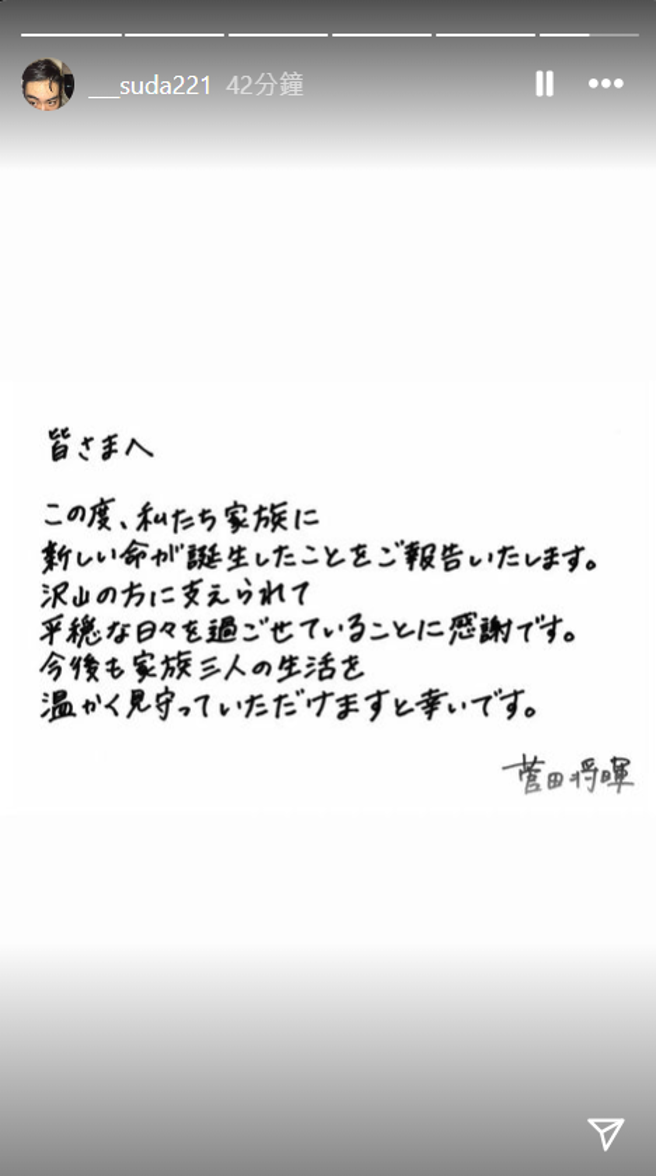 ___suda221 42分鐘
皆さまへ
この度、私たち家族に
新しい命が誕生したことをご報告いたします。
沢山の方に支えられて
平穏な日々を過ごせていることに感謝です。
今後も家族三人の生活を
温かく見守っていただけますと幸いです。
菅田将暉